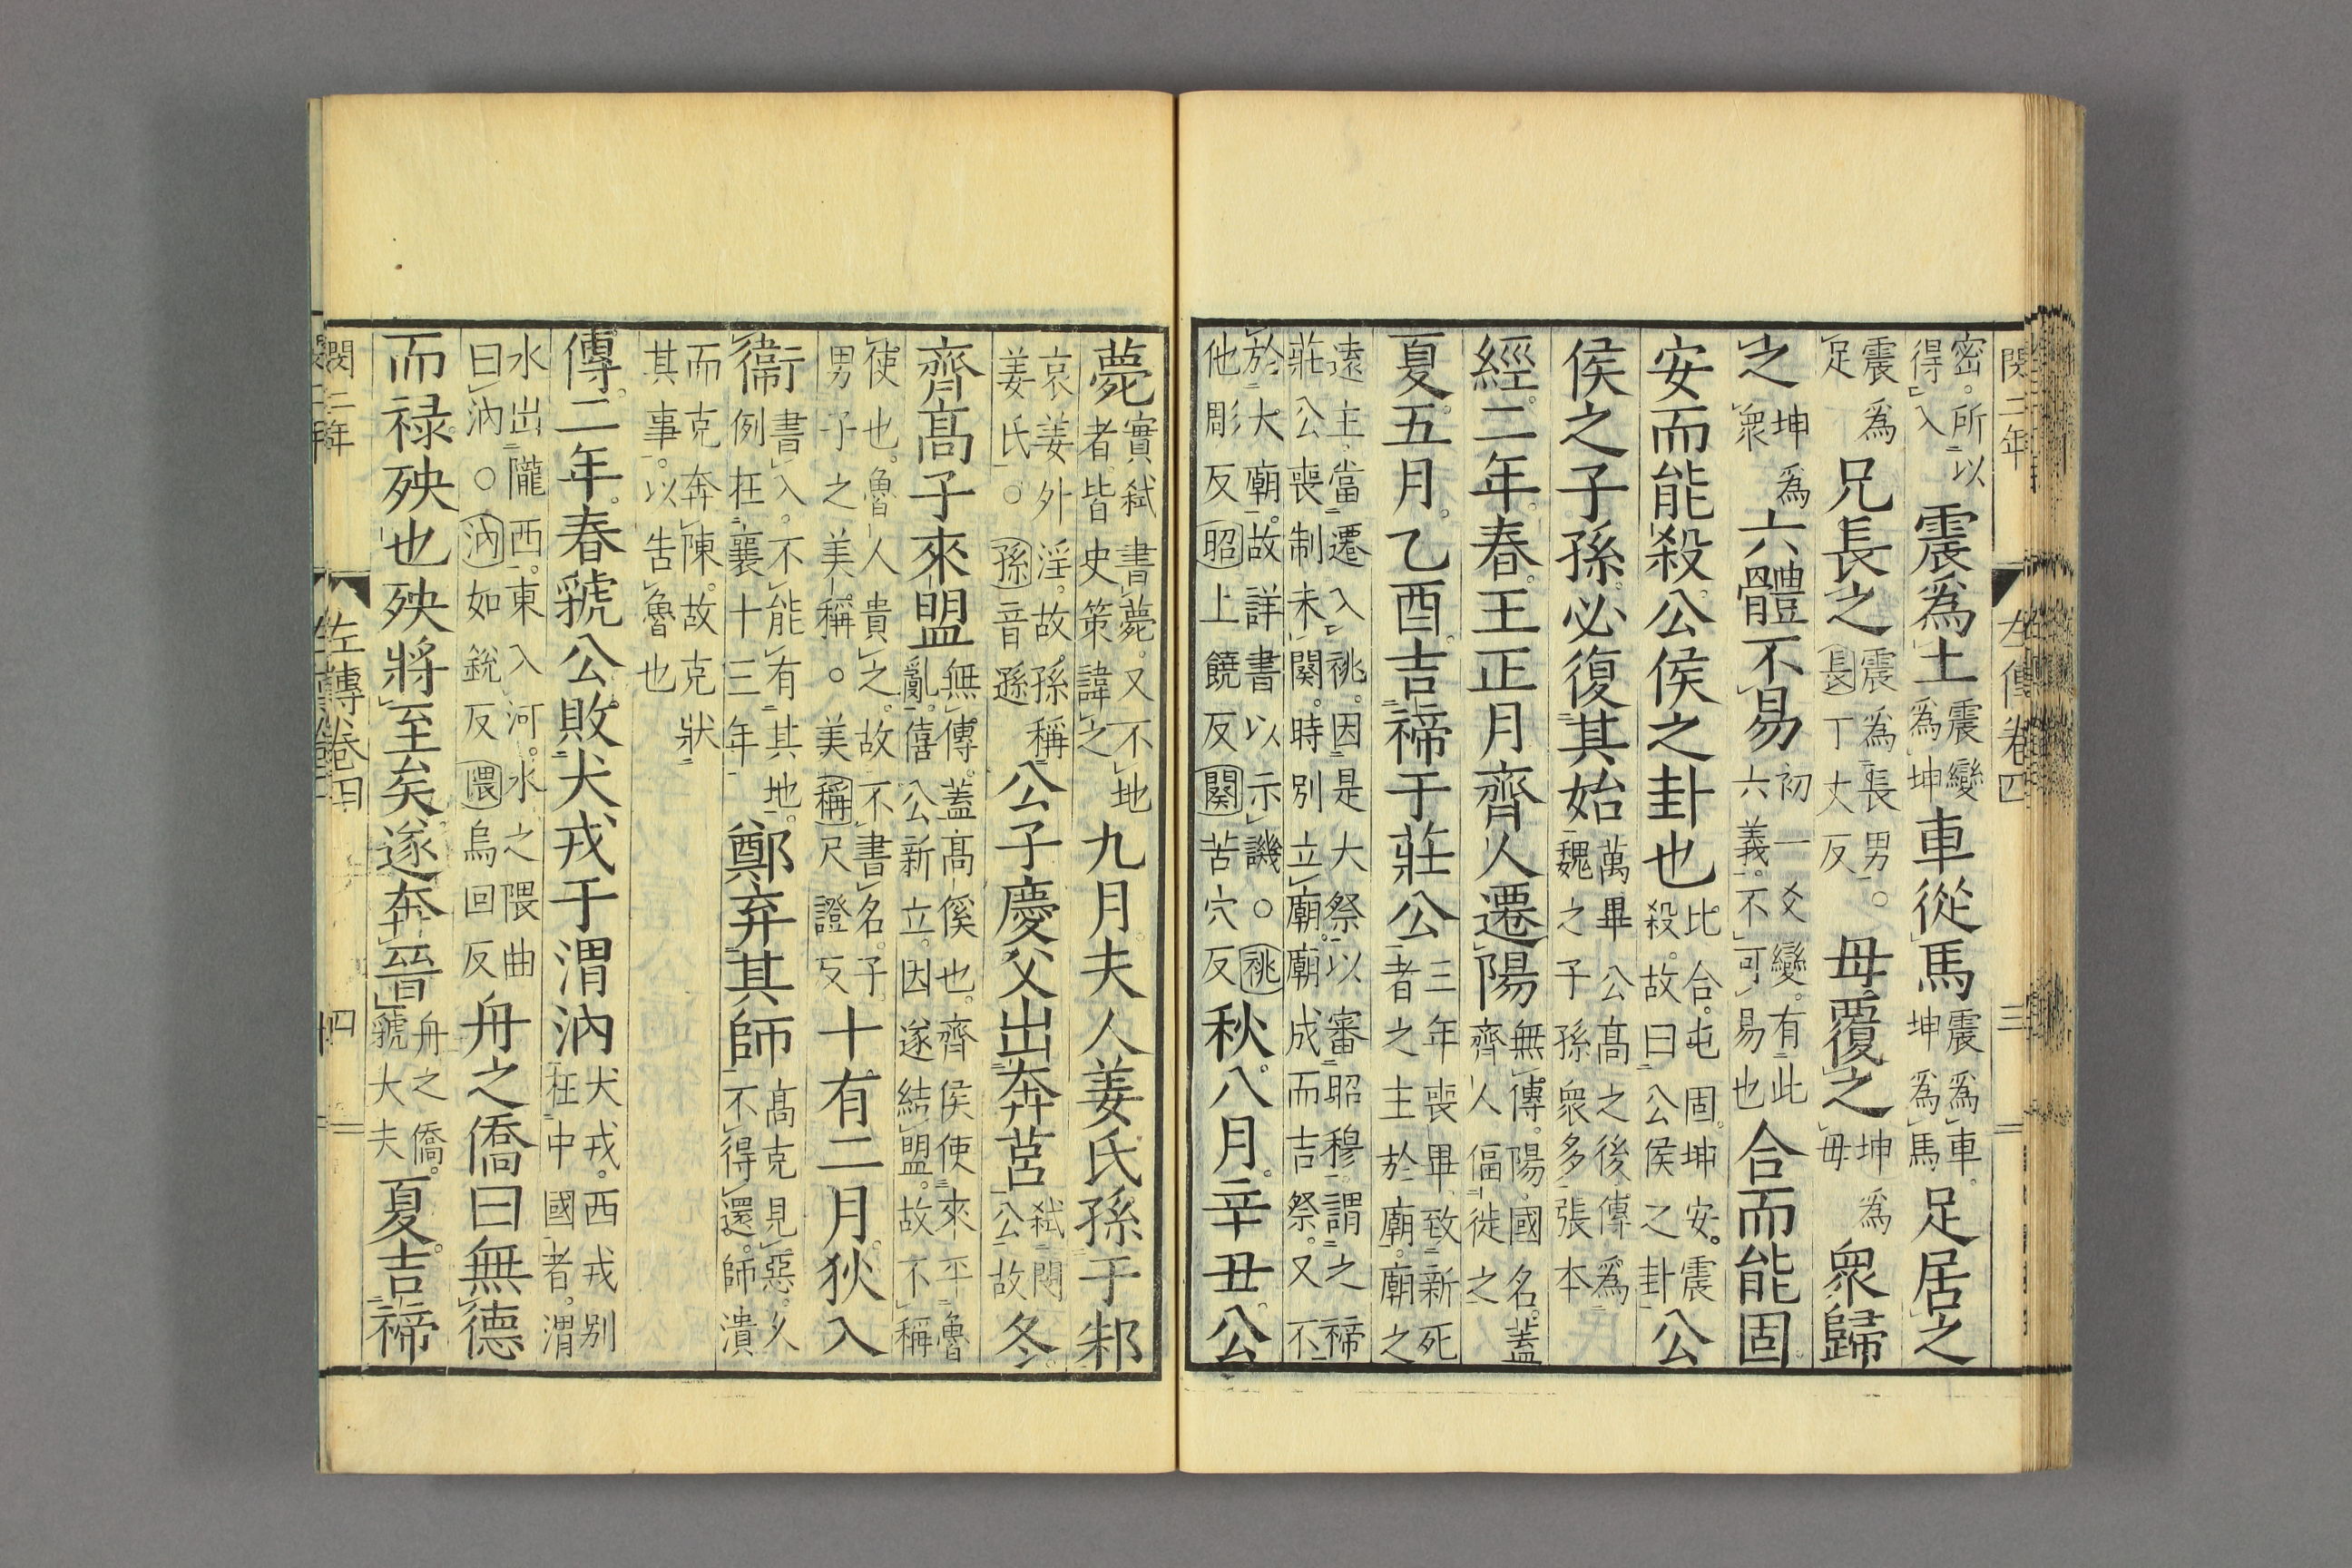 閔二年 左傳卷四 三
密。所以得入震爲土震變爲坤車從馬震爲車。坤爲馬足居之
震爲足兄長之震爲長男。○長丁丈反母覆之坤爲母衆歸
之坤爲衆六體不易初一爻變。有此六義。不可易也合而能固
安而能殺。公侯之卦也比合。屯固。坤安。震殺。故曰公侯之卦公
侯之子孫。必復其始萬畢公高之後傳爲魏之子孫衆多張本
經。二年。春。王正月齊人遷陽無傳。陽。國名。蓋齊人偪徙之
夏。五月。乙酉。吉禘于莊公三年喪畢致新死者之主於廟。廟之
遠主。當遷入祧。因是大祭。以審昭穆。謂之禘莊公喪制未闋。時別立廟。廟成而吉祭。又不
於大廟。故詳書以示譏。○祧他彫反昭上饒反闋苦穴反秋。八月。辛丑。公
薨實弑書薨。又不地者。皆史策諱之九月。夫人姜氏孫于邾
哀姜外淫。故孫稱姜氏。○孫音遜公子慶父出奔莒弑閔公故冬。
齊高子來盟無傳。蓋高傒也。齊侯使來平魯亂。僖公新立。因遂結盟。故不稱
使也。魯人貴之。故不書名。子男子之美稱。○美稱尺證反十有二月。狄入
衞書入。不能有其地。例在襄十三年鄭弃其師高克見惡。久不得還。師潰
而克奔陳。故克狀其事。以告魯也
傳。二年。春。虢公敗犬戎于渭汭犬戎。西戎别在中國者。渭
水出隴西。東入河。水之隈曲曰汭。○汭如銳反隈烏回反舟之僑曰無德
而祿。殃也殃將至矣遂奔晉舟之僑。虢大夫夏。吉禘
閔二年 左傳卷四 四